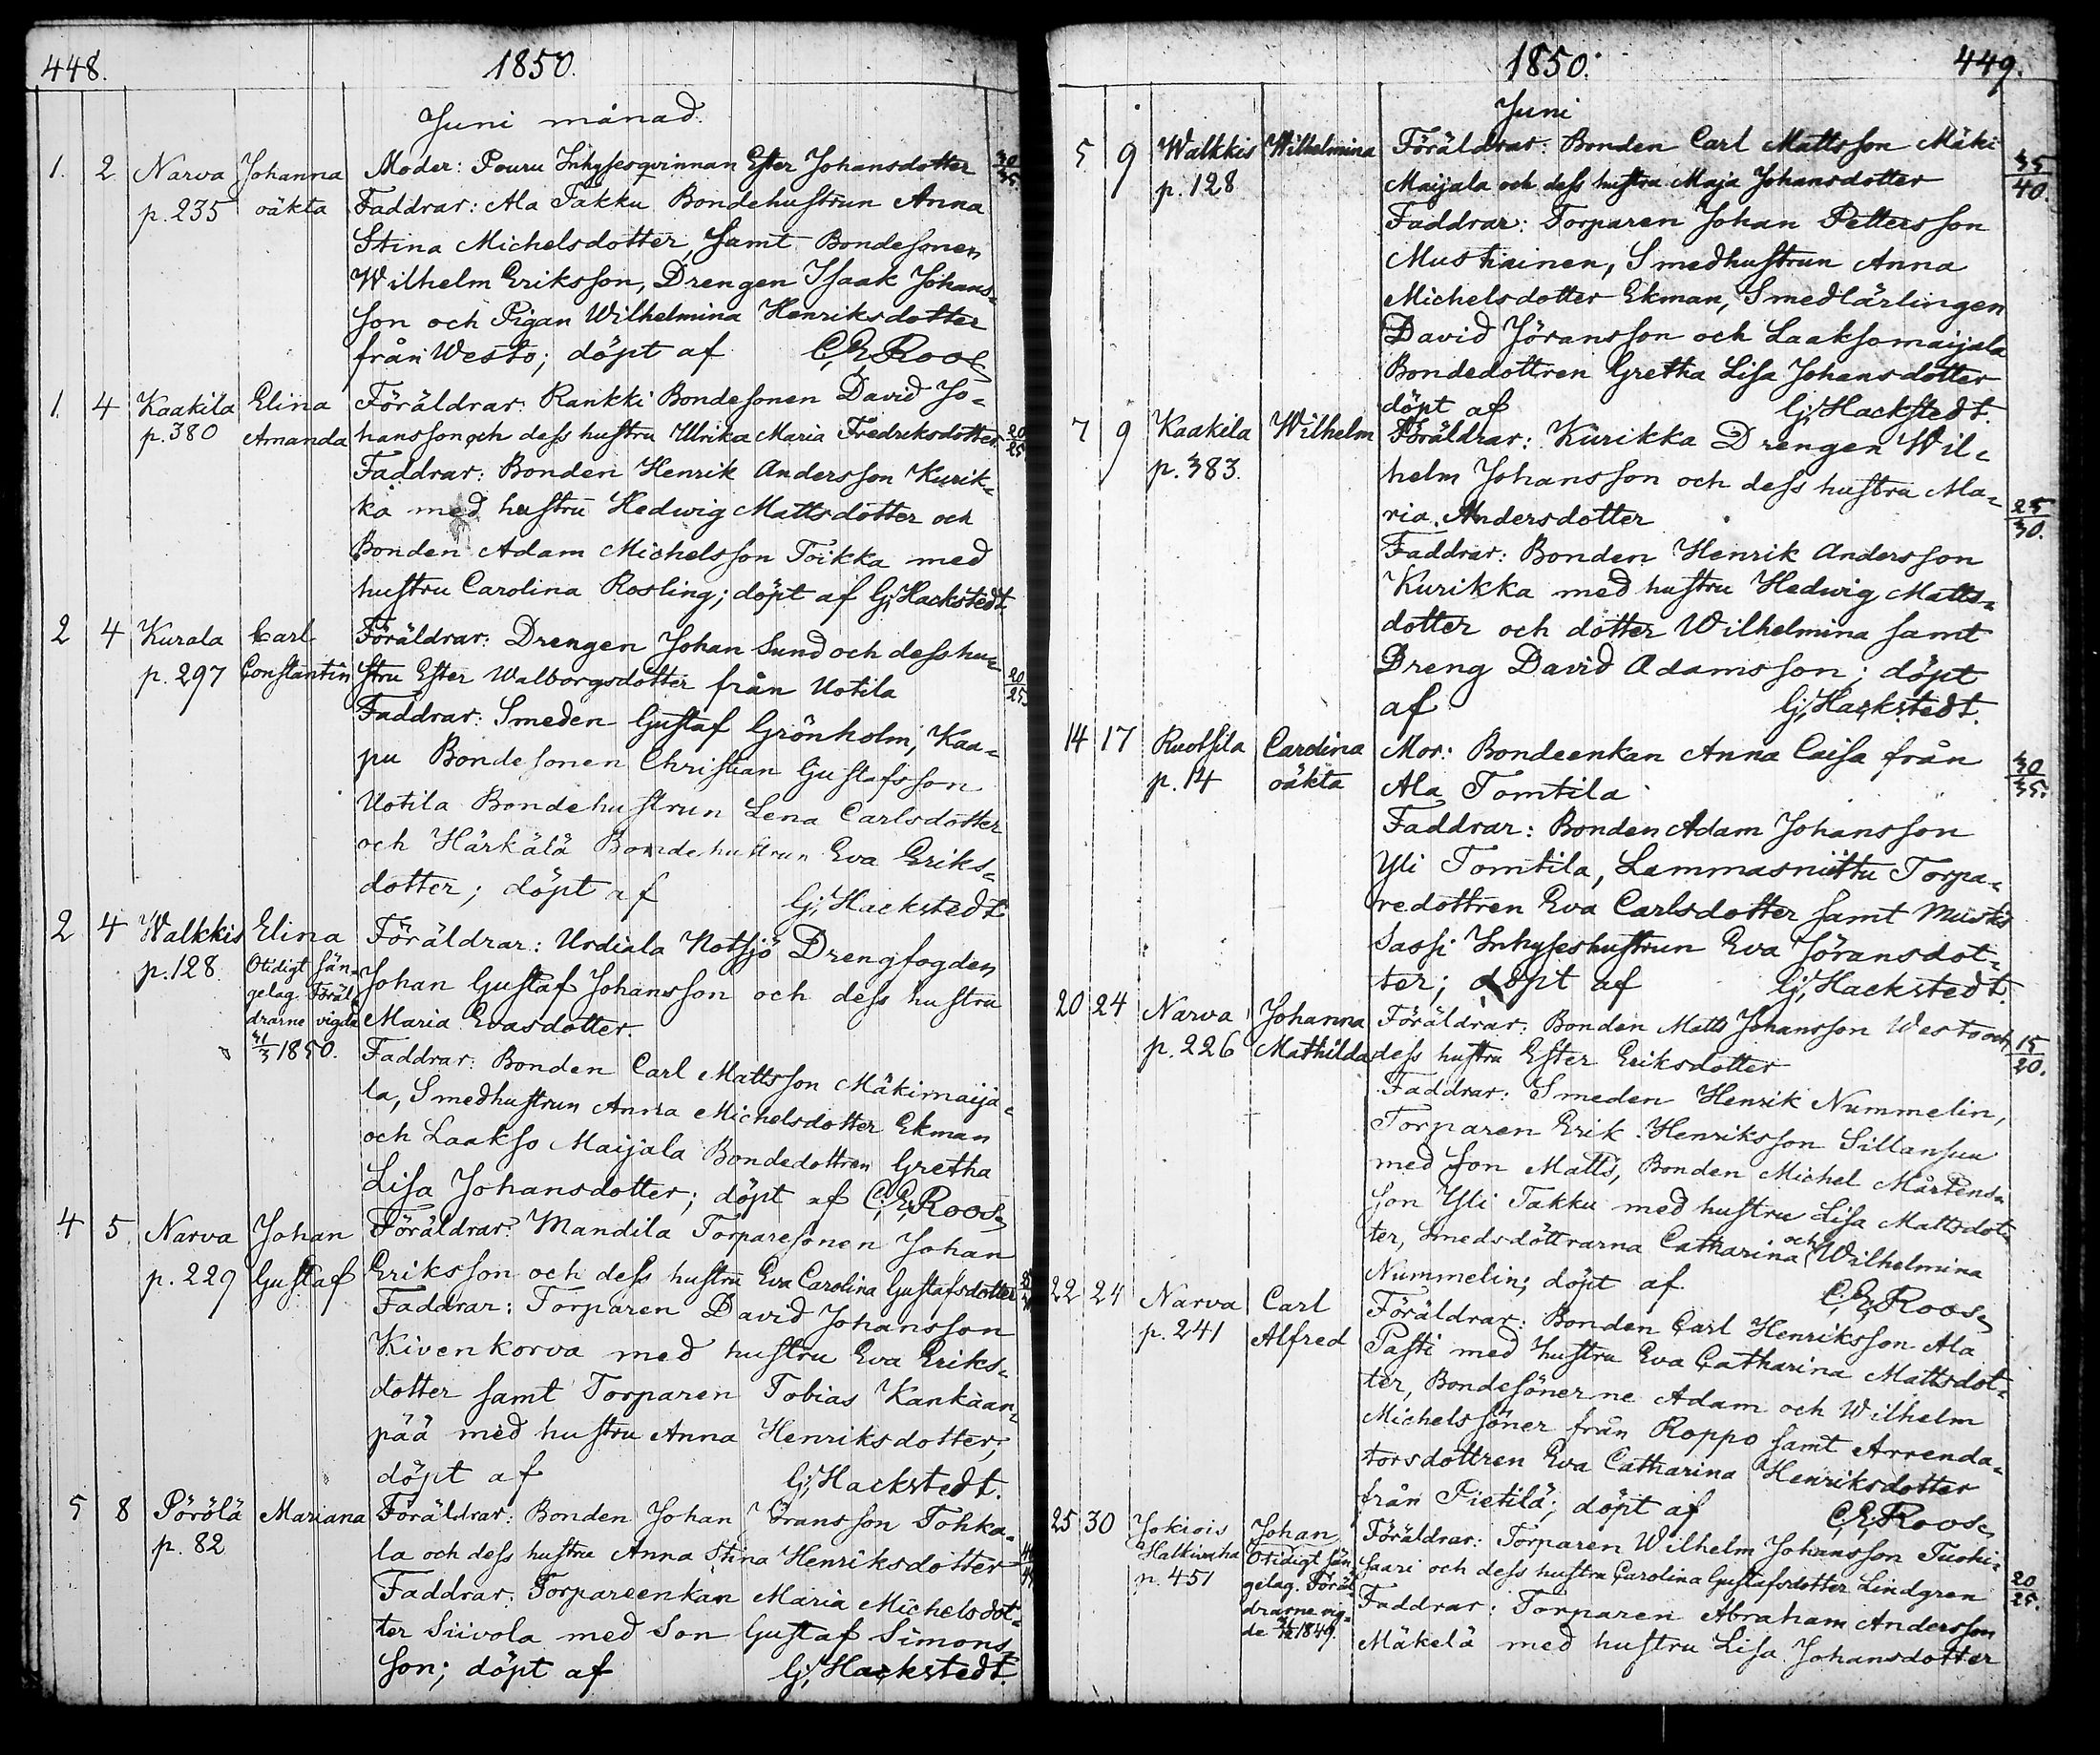 448.
1850.
Juni månad.
1. 2 Narva Johanna Moder: Pouru Inhysesqvinnan Ester Johansdotter 30/35
p. 235 oäkta Faddrar: Ala Takku Bondehustrun Anna
Stina Michelsdotter samt Bondesonen
Wilhelm Eriksson, Drengen Isaak Johans=
son och Pigan Wilhelmina Henriksdotter
från Westo; döpt af C. E. Roos
1. 4 Kaakila Elina Föräldrar: Rankki Bondesonen David Jo=
p. 380 Amanda hansson och dess hustru Ulrika Maria Fredriksdotter 20/25
Faddrar: Bonden Henrik Andersson Kurik=
ka med hustru Hedwig Mattsdotter och
Bonden Adam Michelsson Toikka med
hustru Carolina Rosling; döpt af G. Hackstedt.
2 4 Kurala Carl Föräldrar: Drengen Johan Sund och dess hu=
p. 297 Constantin stru Ester Walborgsdotter från Uotila 20/25
Faddrar: Smeden Gustaf Grönholm, Kaa=
pu Bondesonen Christian Gustafsson
Uotila Bondehustrun Lena Carlsdotter
och Härkälä Bondehustrun Eva Eriks=
dotter; döpt af G. Hackstedt.
2 4 Walkkis Elina Föräldrar: Urdiala Notsjö Drengfogden
p. 128. Otidigt sän= Johan Gustaf Johansson och dess hustru
gelag. Föräl=
drarne vigda Maria Evasdotter.
1850. Faddrar: Bonden Carl Mattsson Mäkimaija=
la, Smedhustrun Anna Michelsdotter Ekman
och Laakso Maijala Bondedottren Gretha
Lisa Johansdotter; döpt af C. E. Roos
4 5 Narva Johan Föräldrar: Mandila Torparesonen Johan
p. 229 Gustaf Eriksson och dess hustru Eva Carolina Gustafsdotter
Faddrar: Torparen David Johansson
Kivenkorva med hustru Eva Eriks=
dotter samt Torparen Tobias Kankaan=
pää med hustru Anna Henriksdotter,
döpt af G. Hackstedt.
5 8 Pörölä Mariana Föräldrar: Bonden Johan Göransson Tohka=
p. 82 la och dess hustru Anna Stina Henriksdotter
Faddrar: Torpareenkan Maria Michelsdot=
ter Siivola med Son Gustaf Simons=
son; döpt af G. Hackstedt.
1850.
449.
Juni
5 9 Walkkis Wilhelmina Föräldrar: Bonden Carl Mattsson Mäki
p. 128 Maijala och dess hustru Maja Johansdotter 35/40.
Faddrar: Torparen Johan Pettersson
Mustiainen, Smedhustrun Anna
Michelsdotter Ekman, Smedlärlingen
David Jöransson och Laaksomaijala
Bondedottren Gretha Lisa Johansdotter
döpt af G. Hackstedt.
7 9 Kaakila Wilhelm Föräldrar: Kurikka Drengen Wil=
p. 383. helm Johansson och dess hustru Ma=
ria Andersdotter 25/30.
Faddrar: Bonden Henrik Andersson
Kurikka med hustru Hedwig Matts=
dotter och dotter Wilhelmina samt
Dreng David Adamsson; döpt
af G. Hackstedt.
14 17 Ruotsila Carolina Mor: Bondeenkan Anna Caisa från 30/35.
p. 14 oäkta Ala Tomtila
Faddrar: Bonden Adam Johansson
Yli Tomtila, Lammasniittu Torpa=
redottren Eva Carlsdotter samt
Sassi Inhyseshustrun Eva Jöransdot=
ter; döpt af G. Hackstedt.
20 24 Narva Johanna Föräldrar: Bonden Matts Johansson Westo och 15/20.
p. 226 Mathilda dess hustru Ester Eriksdotter
Faddrar: Smeden Henrik Nummelin,
Torparen Erik Henriksson Sillansuu
med Son Matts, Bonden Michel Mårtens=
son Yli Takku med hustru Lisa Mattsdot=
ter, Smedsdöttrarna Catharina och Wilhelmina
Nummelin; döpt af C. E. Roos
22 24 Narva Carl Föräldrar: Bonden Carl Henriksson Ala
p. 241 Alfred Pasti med hustru Eva Catharina Mattsdot=
ter, Bondesönerne Adam och Wilhelm
Michelssöner från Roppo samt Arrenda=
torsdottren Eva Catharina Henriksdotter
från Pietilä; döpt af C. E. Roos
25 30 Jokiois Johan Föräldrar: Torparen Wilhelm Johansson Tuohi=
Otidigt sän= saari och dess hustru Carolina Gustafsdotter Lindgren 20/25.
p. 451 gelag. Föräl= Faddrar: Torparen Abraham Andersson
drarne vig=
de 1849. Mäkelä med hustru Lisa Johansdotter